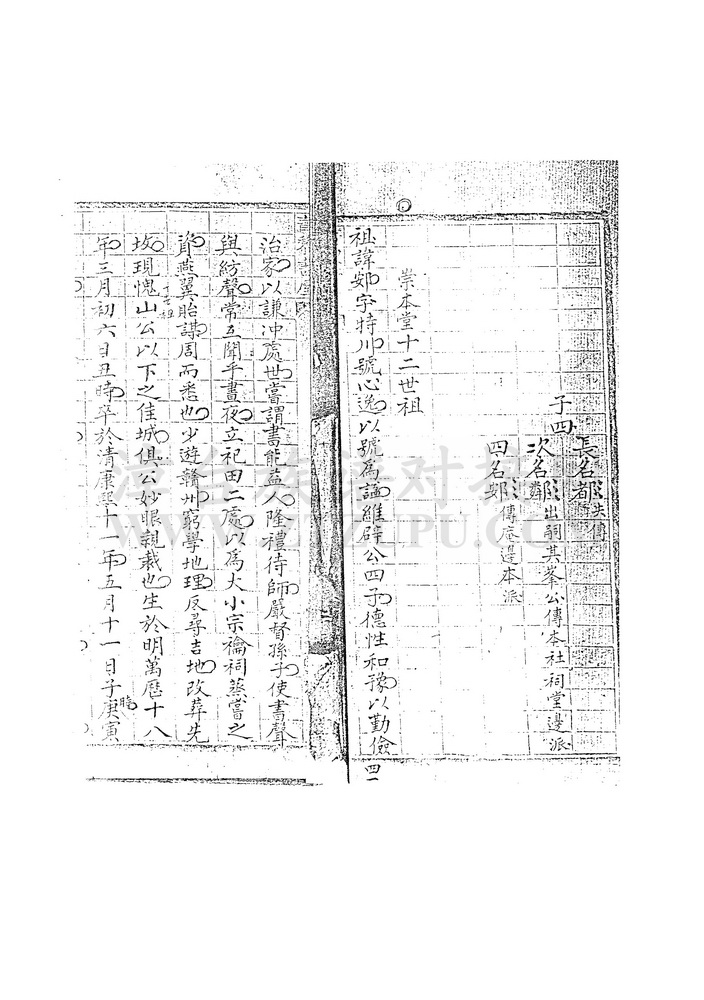 子四
長名都 失傳
次名鄰 出嗣其峯公傳本社祠堂邊派
四名郊 傳庵邊本派
崇本堂十二世祖
祖諱鄭字特川號心逸以號為謚維辟公四子德性和豫以勤儉
四一
治家以謙冲處世嘗謂書能益人隆禮待師嚴督孫子使書聲
與紡聲常互聞乎晝夜立祀田二處以為大小宗禴祠蒸嘗之
資燕翼貽謀周而悉也少遊贛州窮學地理反尋吉地改葬先
坟現愧山公以下之佳城俱公妙眼親裁也生於明萬曆十八
十世祖
年三月初六日丑時卒於清康熙十一年五月十一日子時庚寅
漳台族谱对接
WWW.ZTZUPU.COM